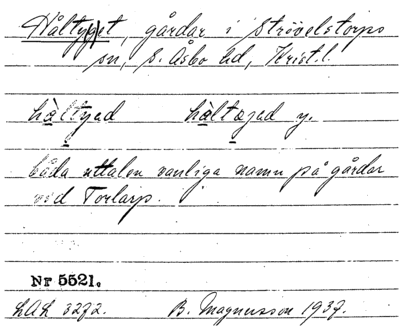 Håltyget, gårdar i Strövelstorps
sn, S. Åsbo hd, Krist. l.
hàltyed hàltægad y.
båda uttalen vanliga namn på gårdar
vid Torlarp.
Nr 5521.
LAL 3272. B. Magnusson 1937.